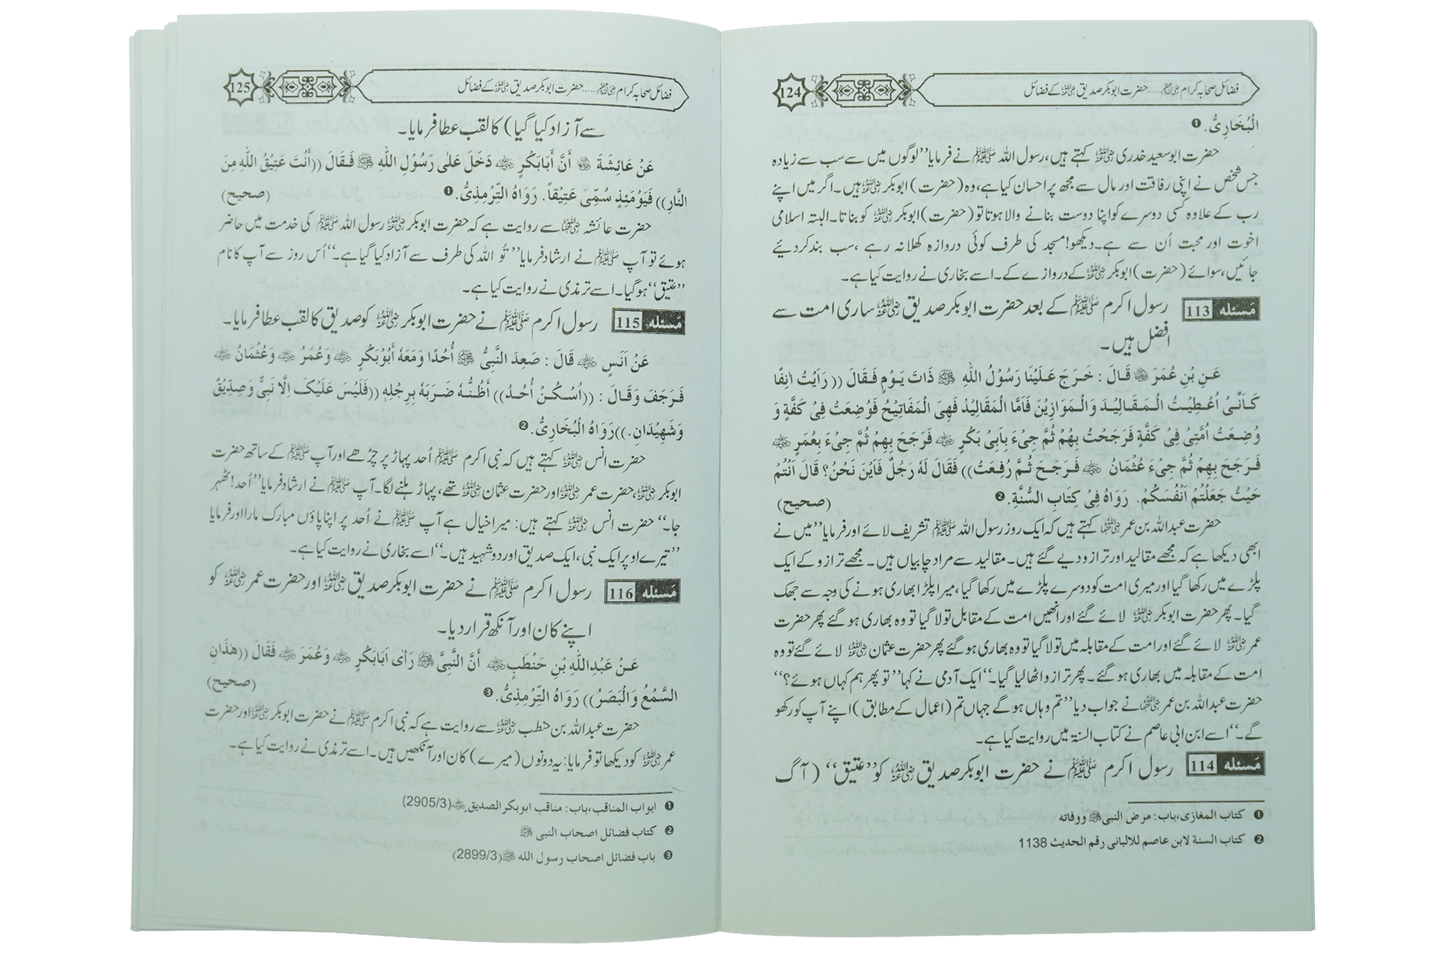 فضائل صحابہ کرام ﷢..... حضرت ابوبکر صدیق ﷜ کے فضائل
124
الْبُخَارِیُّ. ❶
حضرت ابوسعید خدری ﷜ کہتے ہیں، رسول اللہ ﷺ نے فرمایا ”لوگوں میں سے سب سے زیادہ
جس شخص نے اپنی رفاقت اور مال سے مجھ پر احسان کیا ہے، وہ (حضرت) ابوبکر ﷜ ہیں۔ اگر میں اپنے
رب کے علاوہ کسی دوسرے کو اپنا دوست بنانے والا ہوتا تو (حضرت) ابوبکر ﷜ کو بناتا۔ البتہ اسلامی
اخوت اور محبت اُن سے ہے۔ دیکھو! مسجد کی طرف کوئی دروازہ کھلا نہ رہے، سب بند کر دیئے
جائیں، سوائے (حضرت) ابوبکر ﷜ کے دروازے کے۔ اسے بخاری نے روایت کیا ہے۔
مَسئلہ 113 رسول اکرم ﷺ کے بعد حضرت ابوبکر صدیق ﷜ ساری امت سے
افضل ہیں۔
عَنِ بْنِ عُمَرَ ﷜ قَالَ : خَرَجَ عَلَیْنَا رَسُوْلُ اللہِ ﷺ ذَاتَ یَوْمٍ فَقَالَ (( رَاَیْتُ اٰنِفًا
کَاَنِّیْ اُعْطِیْتُ الْمَقَالِیْدَ وَالْمَوَازِیْنَ فَاَمَّا الْمَقَالِیْدُ فَھِیَ الْمَفَاتِیْحُ فَوُضِعَتْ فِیْ کَفَّۃٍ وَ
وُضِعَتْ اُمَّتِیْ فِیْ کَفَّۃٍ فَرَجَحَتْ بِھِمْ ثُمَّ جِیْءَ بِاَبِیْ بَکْرٍ ﷜ فَرَجَحَ بِھِمْ ثُمَّ جِیْءَ بِعُمَرَ ﷜
فَرَجَحَ بِھِمْ ثُمَّ جِیْءَ عُثْمَانُ ﷜ فَرَجَحَ ثُمَّ رُفِعَتْ)) فَقَالَ لَہٗ رَجُلٌ فَاَیْنَ نَحْنُ؟ قَالَ اَنْتُمْ
حَیْثُ جَعَلْتُمْ اَنْفُسَکُمْ. رَوَاہُ فِیْ کِتَابِ السُّنَّۃِ. ❷ (صحیح)
حضرت عبداللہ بن عمر ﷠ کہتے ہیں کہ ایک روز رسول اللہ ﷺ تشریف لائے اور فرمایا ”میں نے
ابھی دیکھا ہے کہ مجھے مقالید اور ترازو دیے گئے ہیں۔ مقالید سے مراد چابیاں ہیں۔ مجھے ترازو کے ایک
پلڑے میں رکھا گیا اور میری امت کو دوسرے پلڑے میں رکھا گیا، میرا پلڑا بھاری ہونے کی وجہ سے جھک
گیا۔ پھر حضرت ابوبکر ﷜ لائے گئے اور انھیں امت کے مقابل تولا گیا تو وہ بھاری ہو گئے پھر حضرت
عمر ﷜ لائے گئے اور امت کے مقابلہ میں تولا گیا تو وہ بھاری ہو گئے پھر حضرت عثمان ﷜ لائے گئے تو وہ
امت کے مقابلہ میں بھاری ہو گئے۔ پھر ترازو اٹھا لیا گیا۔“ ایک آدمی نے کہا ”تو پھر ہم کہاں ہوئے؟“
حضرت عبداللہ بن عمر ﷠ نے جواب دیا ”تم وہاں ہو گے جہاں تم (اعمال کے مطابق) اپنے آپ کو رکھو
گے۔“ اسے ابن ابی عاصم نے کتاب السنۃ میں روایت کیا ہے۔
مَسئلہ 114 رسول اکرم ﷺ نے حضرت ابوبکر صدیق ﷜ کو ”عتیق“ (آگ
❶ کتاب المغازی، باب: مرض النبی ﷺ ووفاتہ
❷ کتاب السنۃ لابن عاصم للالبانی رقم الحدیث 1138
فضائل صحابہ کرام ﷢..... حضرت ابوبکر صدیق ﷜ کے فضائل
125
سے آزاد کیا گیا) کا لقب عطا فرمایا۔
عَنْ عَائِشَۃَ ﷞ اَنَّ اَبَابَکْرٍ ﷜ دَخَلَ عَلٰی رَسُوْلِ اللہِ ﷺ فَقَالَ ((اَنْتَ عَتِیْقُ اللہِ مِنَ
النَّارِ)) فَیَوْمَئِذٍ سُمِّیَ عَتِیْقاً. رَوَاہُ التِّرْمِذِیُّ. ❶ (صحیح)
حضرت عائشہ ﷞ سے روایت ہے کہ حضرت ابوبکر ﷜ رسول اللہ ﷺ کی خدمت میں حاضر
ہوئے تو آپ ﷺ نے ارشاد فرمایا ”تُو اللہ کی طرف سے آزاد کیا گیا ہے۔“ اُس روز سے آپ کا نام
”عتیق“ ہو گیا۔ اسے ترمذی نے روایت کیا ہے۔
مَسئلہ 115 رسول اکرم ﷺ نے حضرت ابوبکر ﷜ کو صدیق کا لقب عطا فرمایا۔
عَنْ اَنَسٍ ﷜ قَالَ : صَعِدَ النَّبِیُّ ﷺ اُحُدًا وَمَعَہٗ اَبُوْبَکْرٍ ﷜ وَعُمَرُ ﷜ وَعُثْمَانُ ﷜
فَرَجَفَ وَقَالَ : ((اُسْکُنْ اُحُدُ)) اَظُنُّہٗ ضَرَبَہٗ بِرِجْلِہٖ ((فَلَیْسَ عَلَیْکَ اِلَّا نَبِیٌّ وَصِدِّیْقٌ
وَشَھِیْدَانِ.))رَوَاہُ الْبُخَارِیُّ. ❷
حضرت انس ﷜ کہتے ہیں کہ نبی اکرم ﷺ اُحد پہاڑ پر چڑھے اور آپ کے ساتھ حضرت
ابوبکر ﷜، حضرت عمر ﷜ اور حضرت عثمان ﷜ تھے، پہاڑ ہلنے لگا۔ آپ ﷺ نے ارشاد فرمایا ”اُحد! ٹھہر
جا۔“ حضرت انس ﷜ کہتے ہیں: میرا خیال ہے آپ ﷺ نے اُحد پر اپنا پاؤں مبارک مارا اور فرمایا
”تیرے اوپر ایک نبی، ایک صدیق اور دو شہید ہیں۔“ اسے بخاری نے روایت کیا ہے۔
مَسئلہ 116 رسول اکرم ﷺ نے حضرت ابوبکر صدیق ﷜ اور حضرت عمر ﷜ کو
اپنے کان اور آنکھ قرار دیا۔
عَنْ عَبْدِاللہِ بْنِ حَنْطَبٍ ﷜ اَنَّ النَّبِیَّ ﷺ رَاٰی اَبَابَکْرٍ ﷜ وَعُمَرَ ﷜ فَقَالَ ((ھٰذَانِ
السَّمْعُ وَالْبَصَرُ)) رَوَاہُ التِّرْمِذِیُّ. ❸ (صحیح)
حضرت عبداللہ بن حنطب ﷜ سے روایت ہے کہ نبی اکرم ﷺ نے حضرت ابوبکر ﷜ اور حضرت
عمر ﷜ کو دیکھا تو فرمایا: یہ دونوں (میرے) کان اور آنکھیں ہیں۔ اسے ترمذی نے روایت کیا ہے۔
❶ ابواب المناقب، باب: مناقب ابوبکر الصدیق ﷜ (2905/3)
❷ کتاب فضائل اصحاب النبی ﷺ
❸ باب فضائل اصحاب رسول اللہ ﷺ (2899/3)